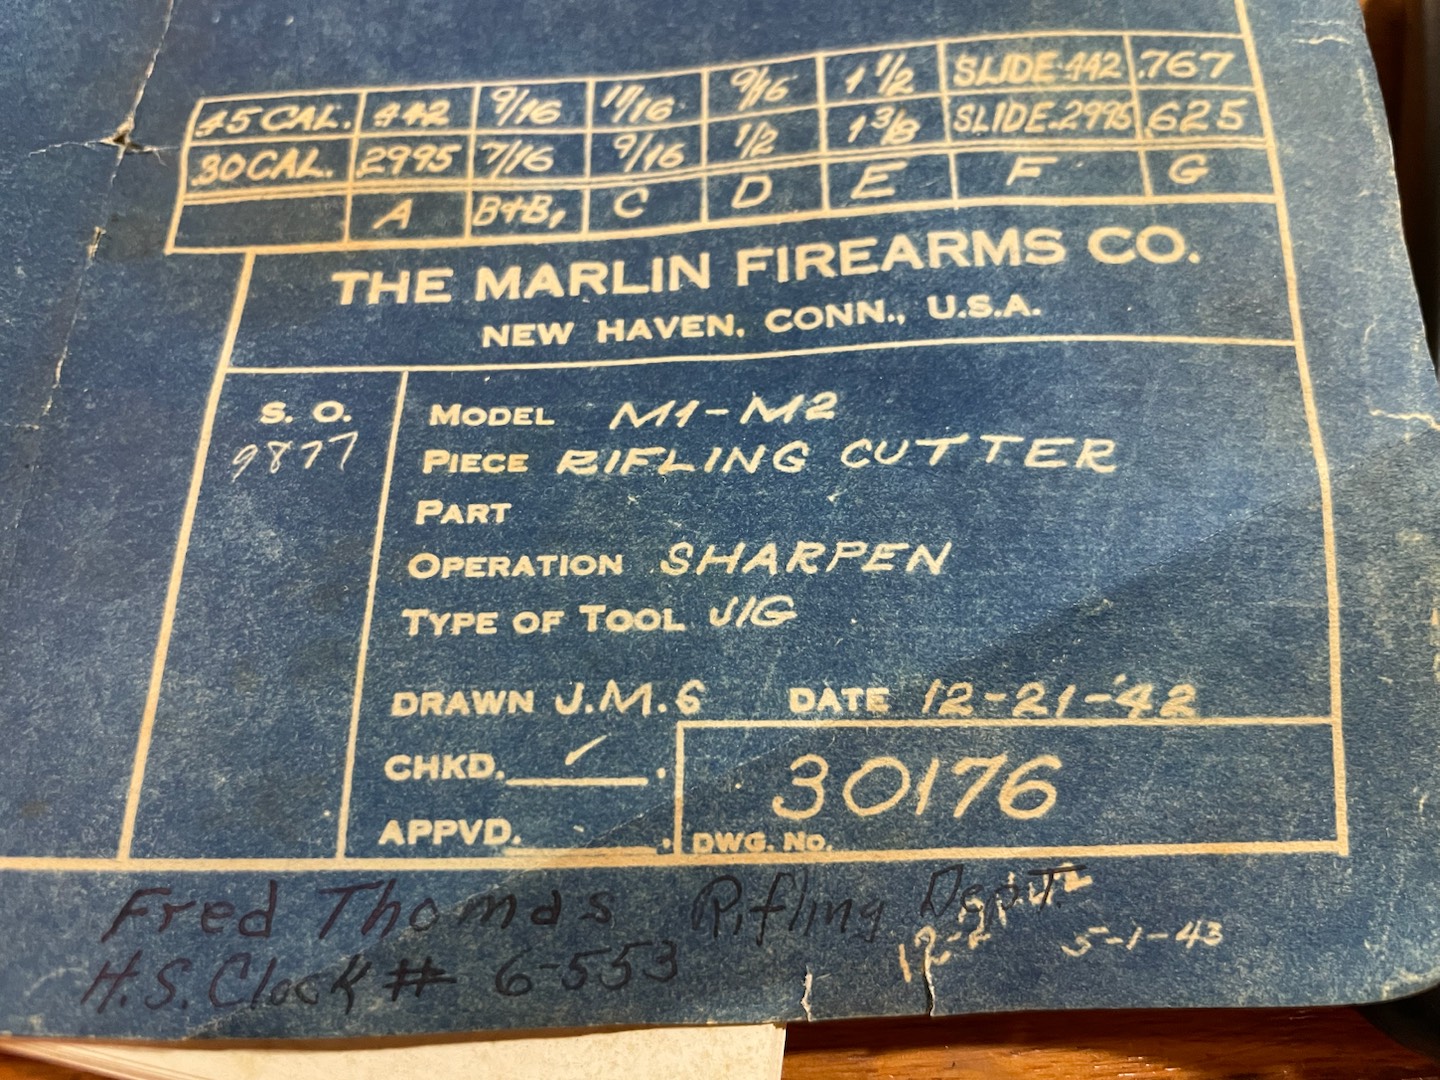 .45 CAL. .442 9/16 11/16 9/16 1 1/2 SLIDE .442 .767
.30 CAL. .2995 7/16 9/16 1/2 1 3/8 SLIDE .2995 .625
A B+B, C D E F G
THE MARLIN FIREARMS CO.
NEW HAVEN, CONN., U.S.A.
S. O.
9877
MODEL M1-M2
PIECE RIFLING CUTTER
PART
OPERATION SHARPEN
TYPE OF TOOL JIG
DRAWN J.M.G DATE 12-21-'42
CHKD.
APPVD.
30176
DWG. No.
Fred Thomas Rifling Dept.
12-21-42 5-1-43
H.S. Clock # 6-553